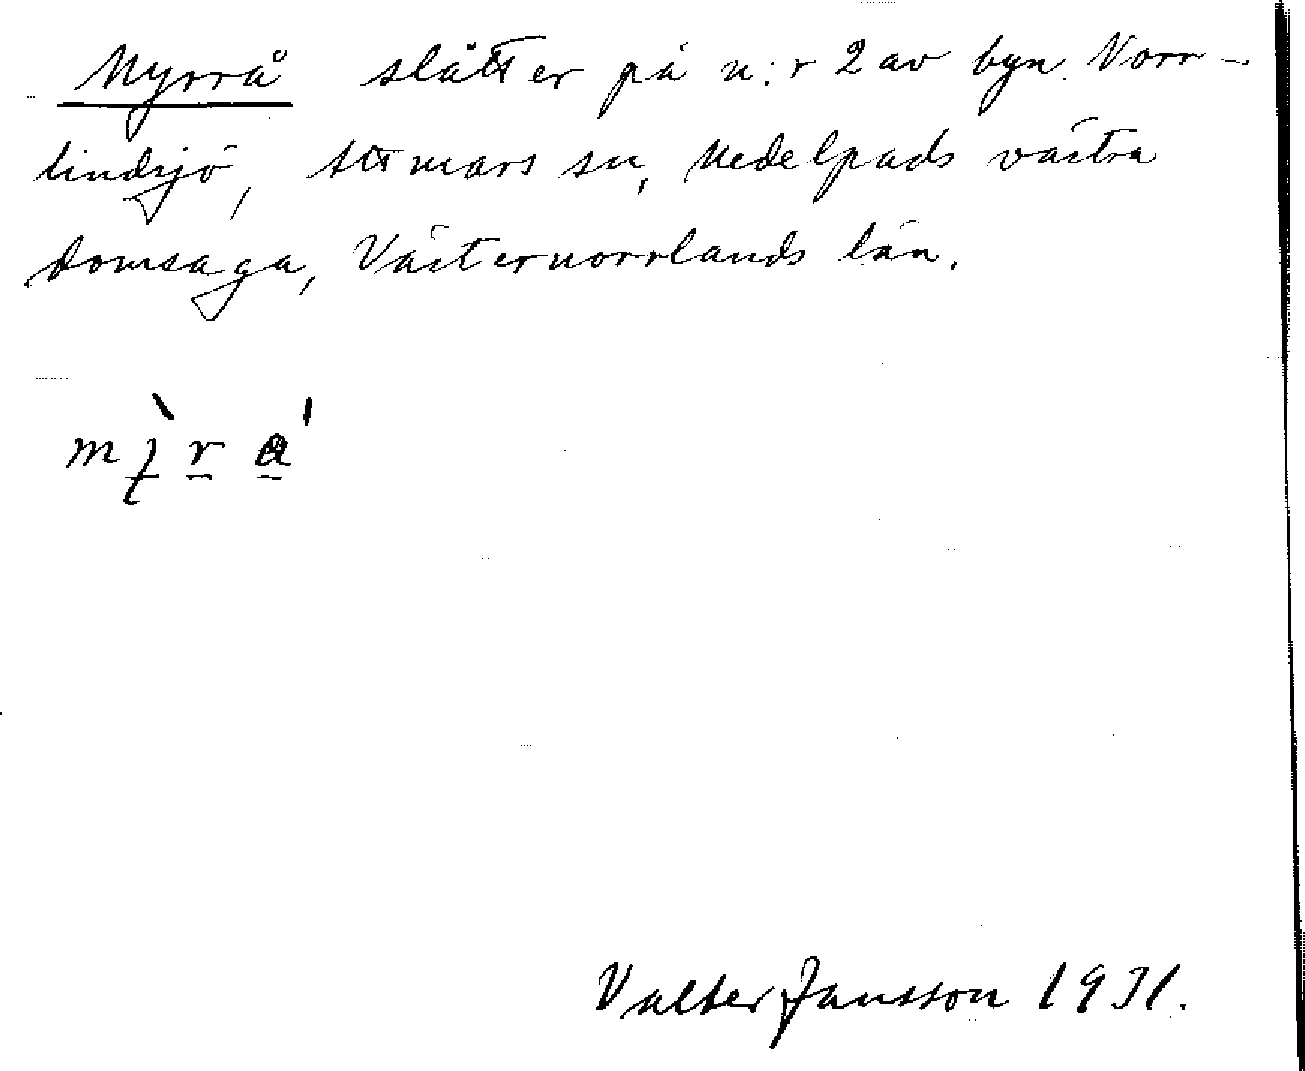 Myrrå slåtter på n:r 2 av byn Norr-
lindsjö, Attmars sn, Medelpads västra
domsaga, Västernorrlands län.
Valter Jansson 1931.